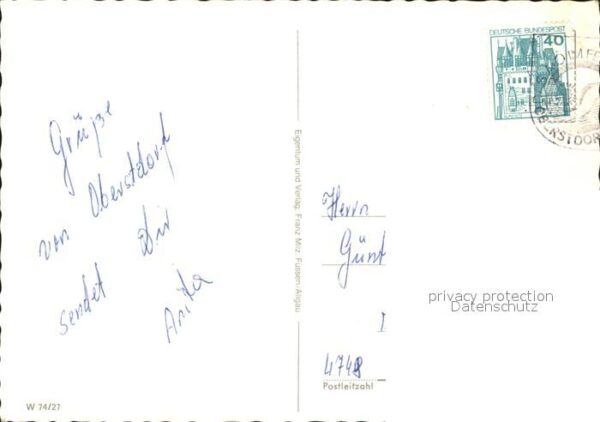 Grüße
von Oberstdorf
sendet Dir
Anita
W 74/27
Eigentum und Verlag: Franz Milz, Füssen/Allgäu
DEUTSCHE BUNDESPOST
40
Herrn
Günt
privacy protection
Datenschutz
4748
Postleitzahl